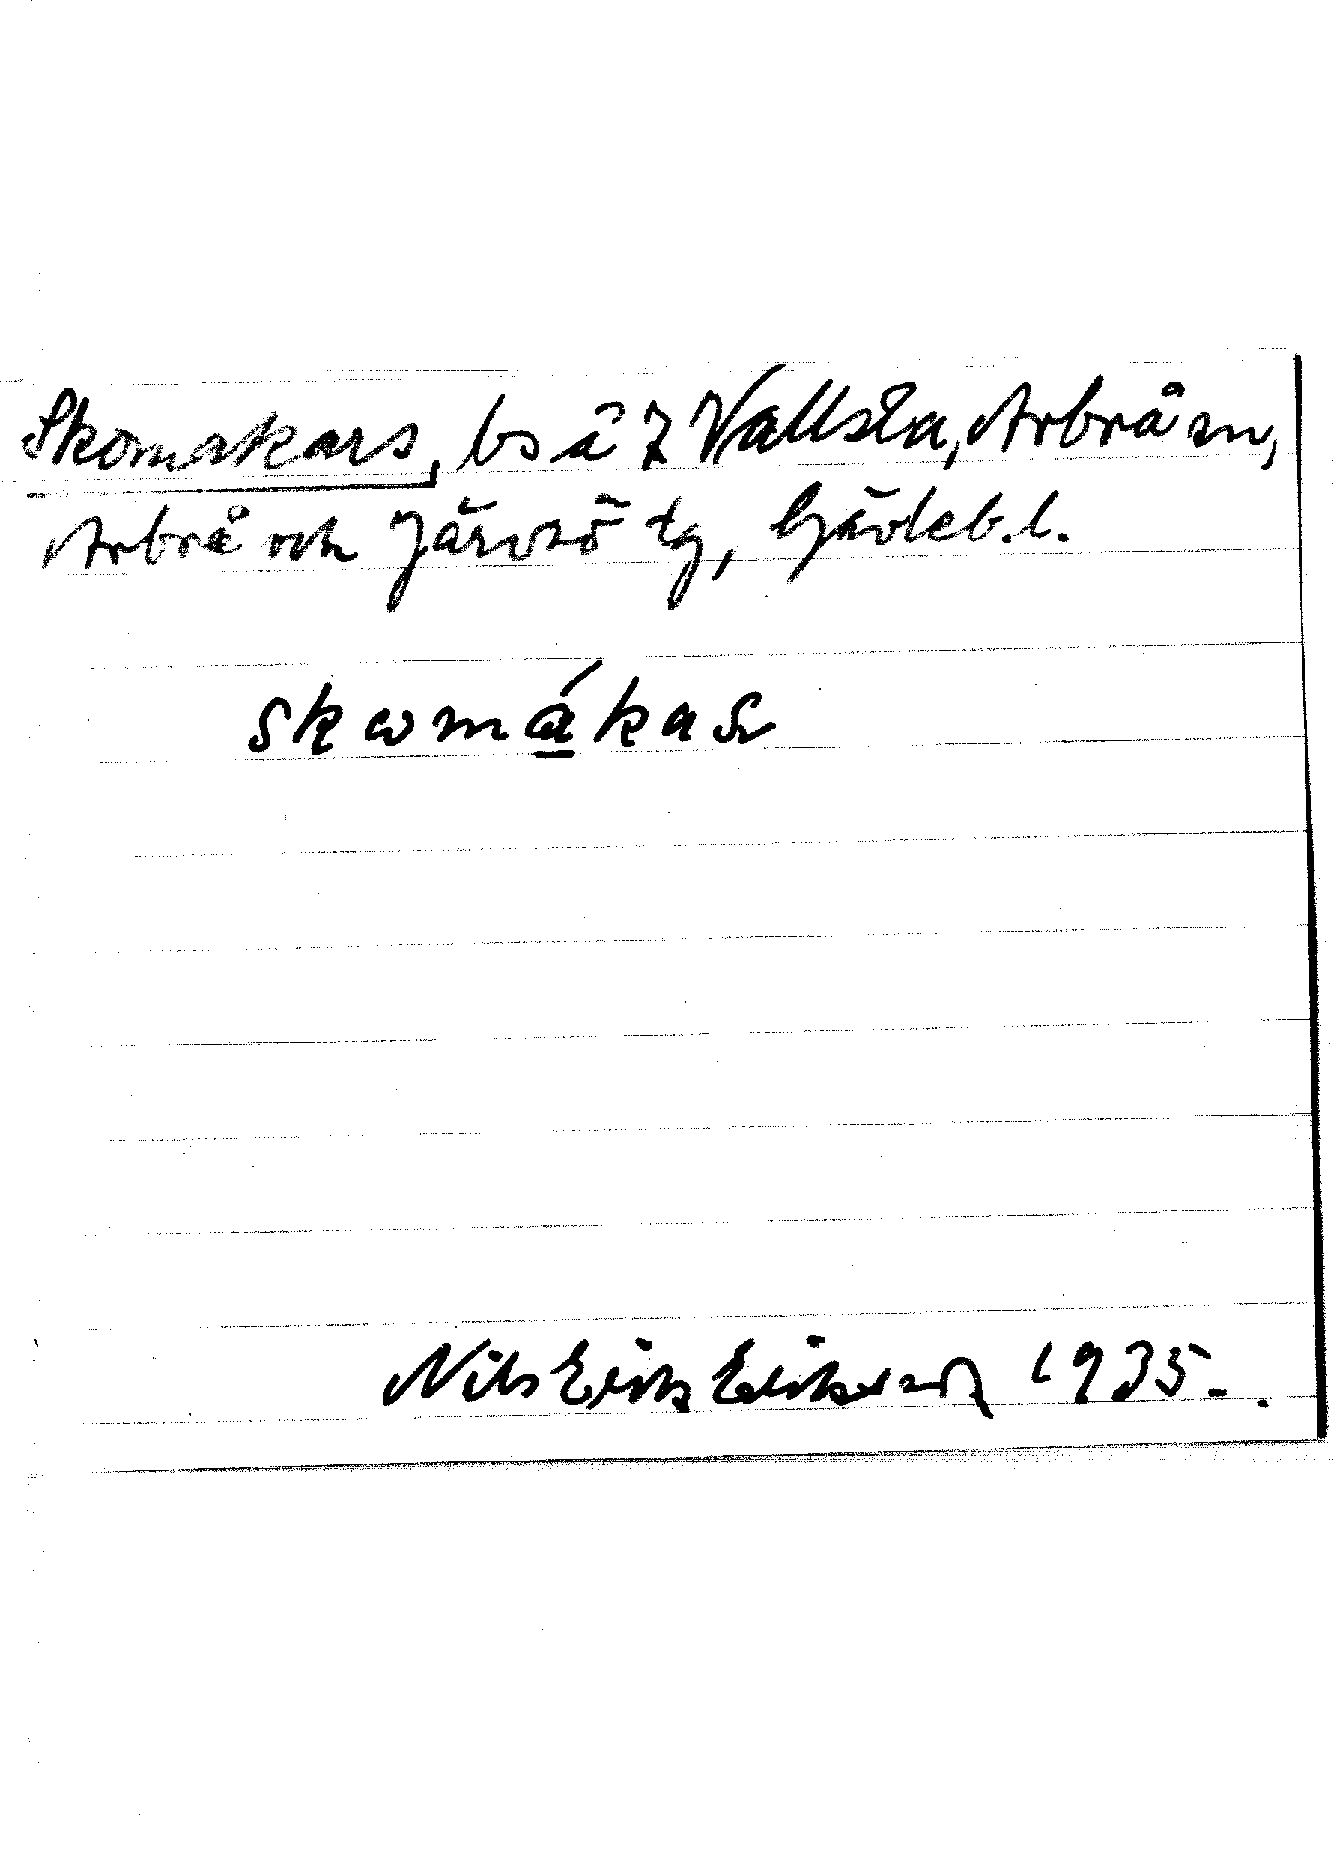 Skomakars, bs å 7 Vallsta, Arbrå sn,
Arbrå och Järvsö tg, Gävleb.l.
skωmákas
Nils Erik Eriksson 1935.